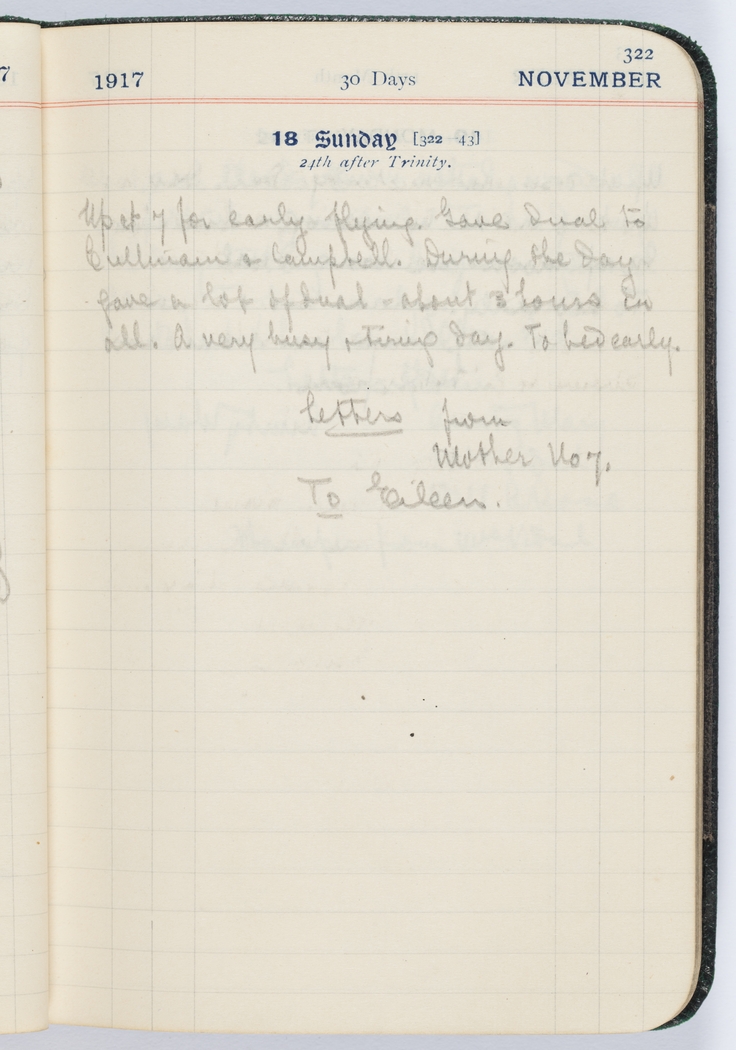 7
322
1917 30 Days NOVEMBER
18 Sunday [322 43]
24th after Trinity.
Up at 7 for early flying. Gave dual to
& Campbell. During the day
gave a lot of dual - about 3 hours in
all. A very busy & tiring day. To bed early.
Letters from
Mother No 7.
To Eileen.